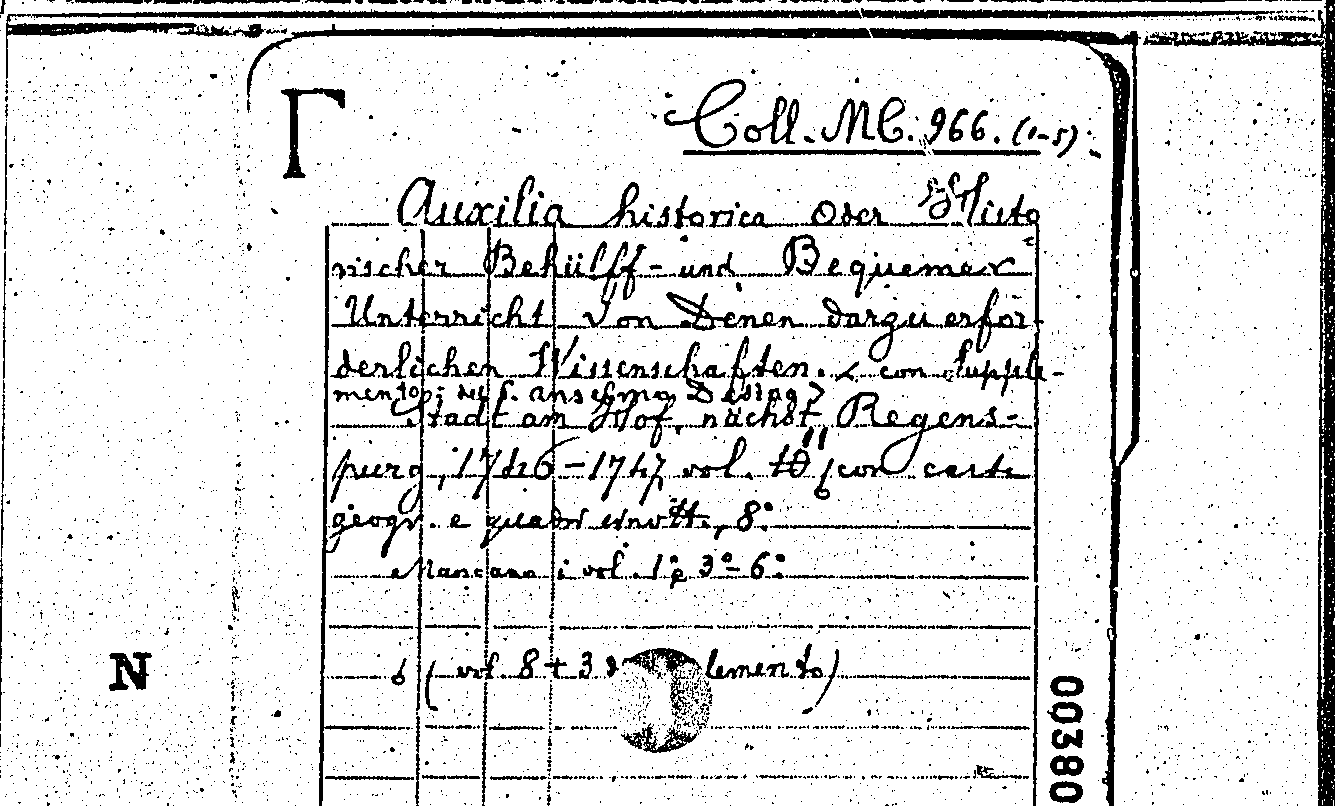 Γ
Coll. MC. 966. (1-5).
Auxilia historica oder Histo
rischer Behülff- und Bequemer
Unterricht Von Denen darzu erfor-
derlichen Wissenschaften. < con supple-
mento; del S. anselmo Desing >
Stadt am Hof, nächst Regens-
purg, 1746-1747 vol. 11 (con carte
geogr. e quadri sinott., 8°
Mancano i vol. 1° e 3°-6°
( vol. 8 + 3 lemento)
N
00380